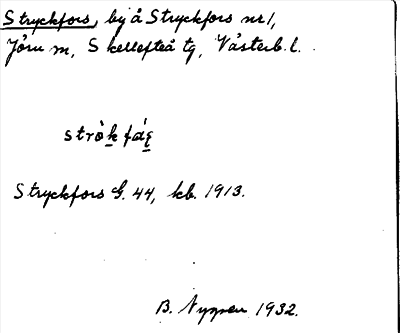 Stryckfors, by å Stryckfors nr 1,
Jörn sn, Skellefteå tg, Västerb. l.
strò̀k fáʂ
Stryckfors G. 44, kb. 1913.
B. Nygren 1932.